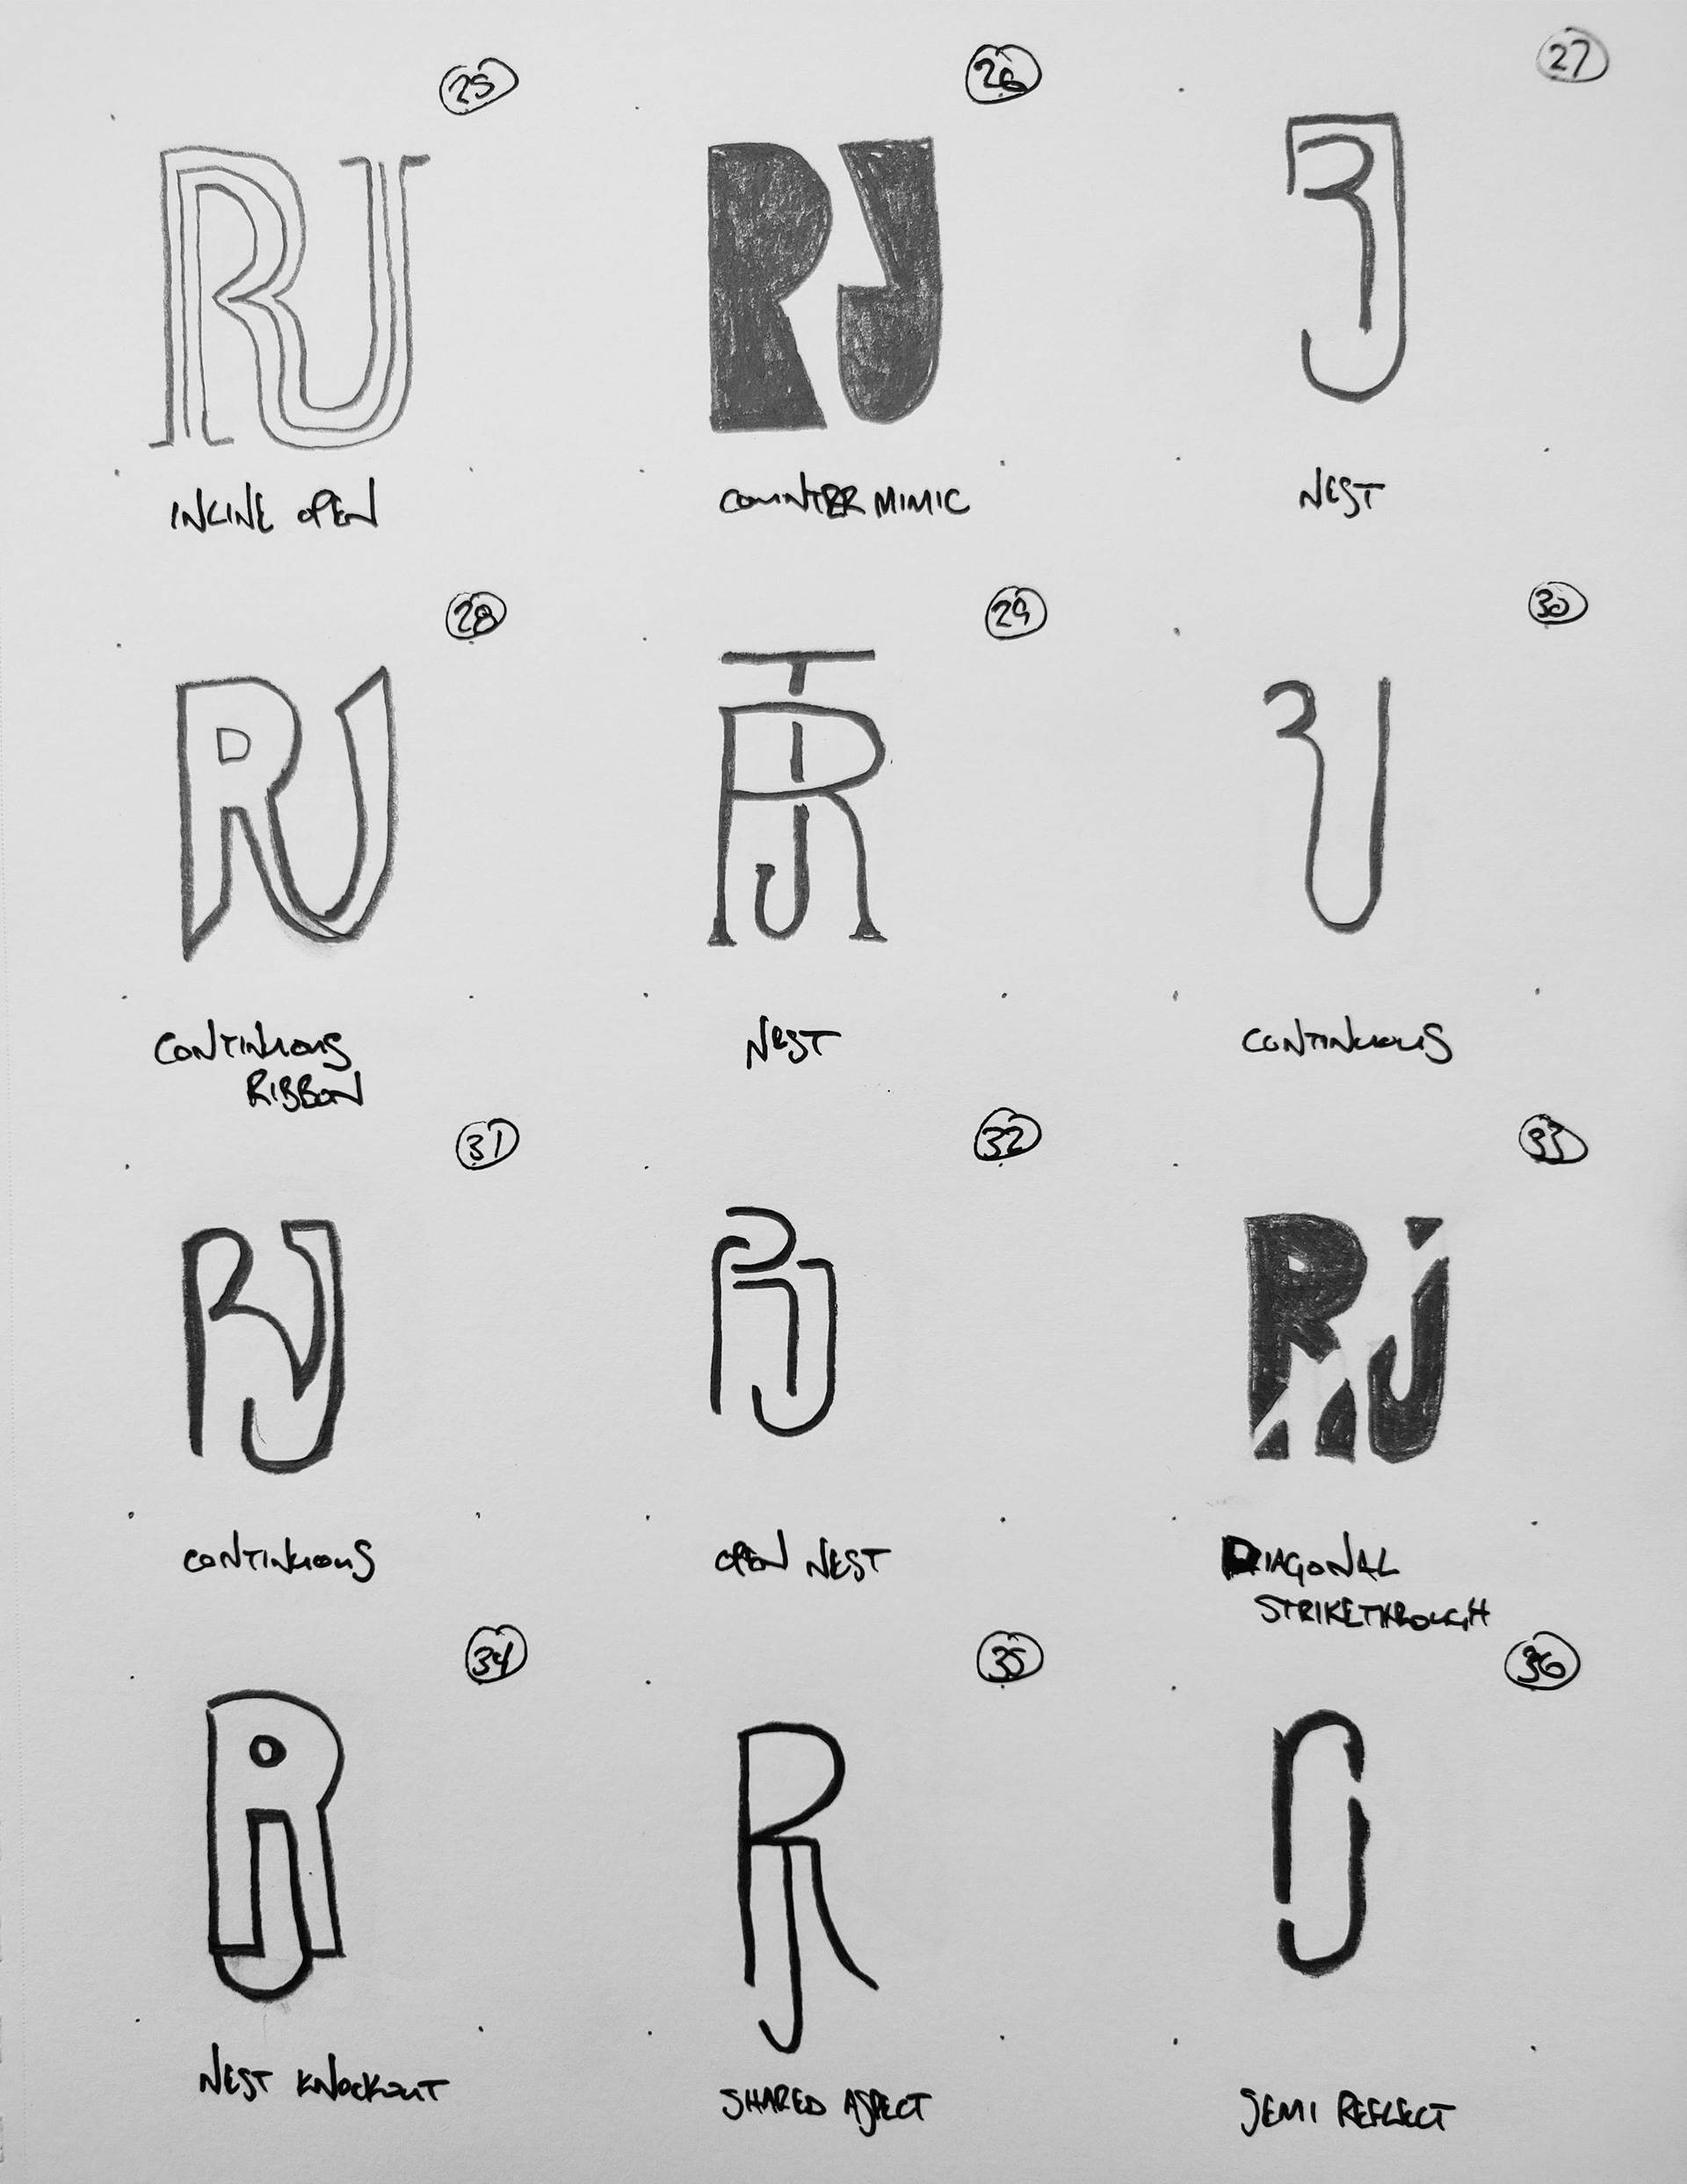 25 26 27
RJ RJ RJ
INLINE OPEN COUNTER MIMIC NEST
28 29 30
RJ RJ RJ
CONTINUOUS
RIBBON NEST CONTINUOUS
31 32 33
RJ RJ RJ
CONTINUOUS OPEN NEST DIAGONAL
STRIKETHROUGH
34 35 36
RJ RJ RJ
NEST KNOCKOUT SHARED ASPECT SEMI REFLECT